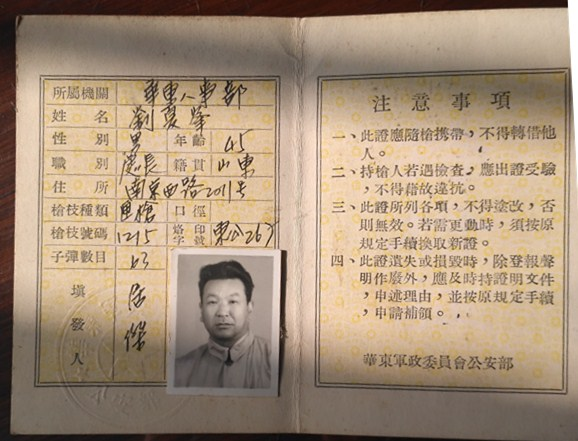 所屬機關 華東人事部
姓名 劉夏峯
性別 男 年齡 45
職別 處長 籍貫 山東
住所 南京西路2011号
槍枝種類 槍 口徑
槍枝號碼 1215 烙印字號 東公267
子彈數目 63
填發人 傑
注意事項
一、此證應隨槍携帶，不得轉借他
人。
二、持槍人若遇檢查，應出證受驗
，不得藉故違抗。
三、此證所列各項，不得塗改，否
則無效。若需更動時，須按原
規定手續換取新證。
四、此證遺失或損毁時，除登報聲
明作廢外，應及時持證明文件
，申述理由，並按原規定手續
，申請補領。
華東軍政委員會公安部